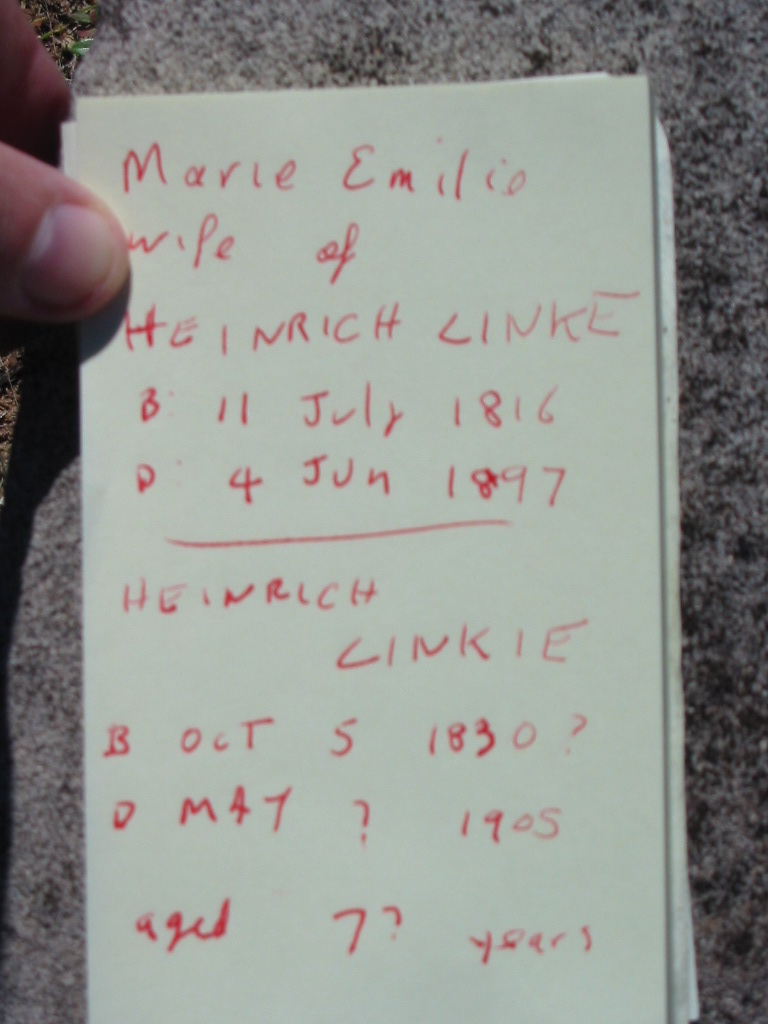 Marie Emilie
wife of
HEINRICH LINKE
B: 11 July 1816
D: 4 JUn 1897
HEINRICH
LINKIE
B OCT 5 1830?
D MAY ? 1905
aged 7? years